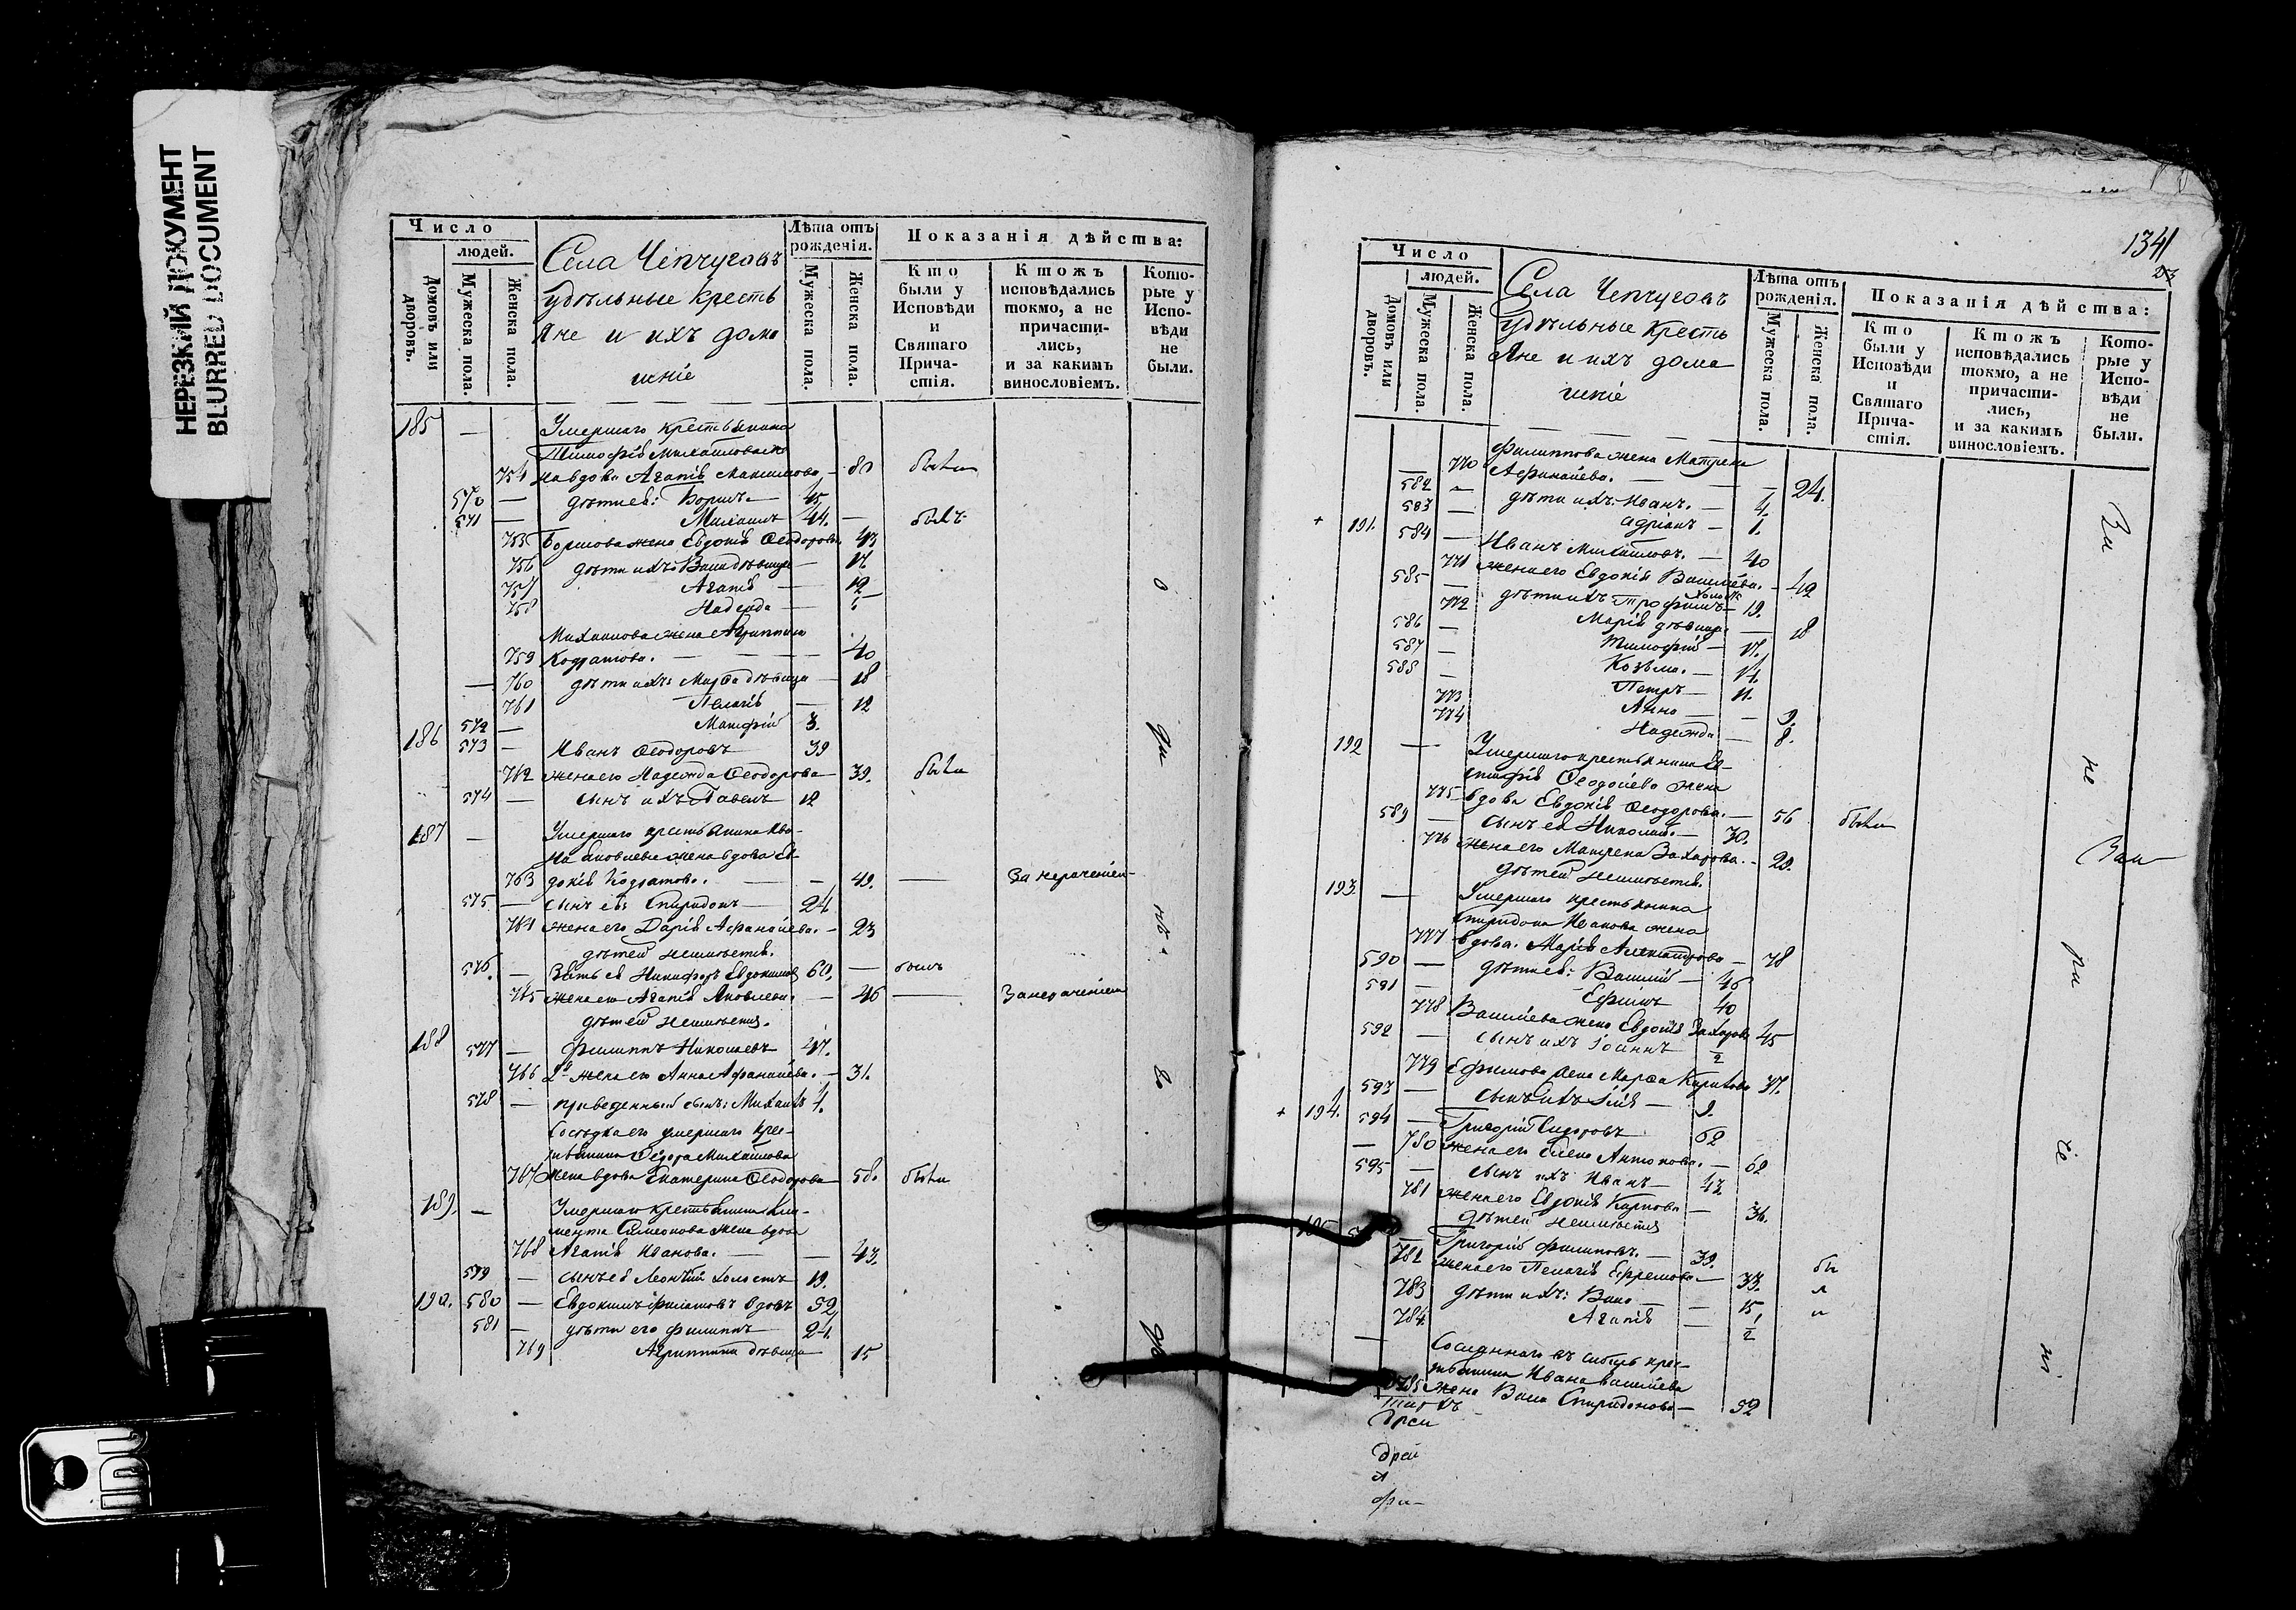 НЕРЕЗКИЙ ДОКУМЕНТ
BLURRED DOCUMENT
Число
людей.
Домовъ или дворовъ.
Мужеска пола.
Женска пола.
Села Чепчуговъ
удѣльные кресть
яне и ихъ дома
шніе
Лѣта отъ рожденія.
Мужеска пола.
Женска пола.
Показанія дѣйства:
Кто были у Исповѣди и Святаго Прича- стія.
Ктожъ исповѣдались токмо, а не причасти- лись, и за какимъ винословіемъ.
Кото- рые у Испо- вѣди не были.
185 — Умершаго крестьянина
Тимофія Михайлова же
754 на вдова Агапія Максимова — 80 были
570 — дѣти ея: Борисъ — 45
571 — Михаилъ 44. — былъ
755 Борисова жена Евдокія Ѳеодорова 43
756 дѣти ихъ: Васса дѣвица — 17
757 Агапія — 12
758 Надежда — 5
Михаилова жена Агриппина
759 Кодратова. — 40
760 дѣти ихъ: Марѳа дѣвица — 18
761 Пелагія — 12
572 — Матфій 3.
186 573 — Иванъ Ѳеодоровъ 39
762 жена его Надежда Ѳеодорова 39. были
574 — сынъ ихъ Павелъ 12
187 — Умершаго крестьянина Ива-
на Яковлева жена вдова Ев-
763 докія Кодратова. — 49. — За нераченіем
575 — сынъ ея: Спиридонъ — 24
764 жена его Дарія Афанасіева. — 23
дѣтей неимѣетъ.
576. — Зять ея Никифоръ Евдокимов 60. — былъ
765 жена его Агапія Яковлева. — 46 — За нераченіем
дѣтей неимѣетъ.
188 577 — Филиппъ Николаевъ 47.
766 2я жена его Анна Афанасіева. — 31.
578 — приведенный сынъ: Михаилъ 4.
Сосѣдка его умершаго крес-
тьянина Ѳедора Михайлова
767 жена вдова Екатерина Ѳеодорова 58. были
189. — Умершаго крестьянина Кли-
мента Симеонова жена вдова
768 Агапія Иванова. — 43.
579 — сынъ ея Леонтій холостъ 19.
190. 580 — Евдокимъ Филатовъ вдовъ 52
581 — дѣти его Филиппъ 24.
769 Агриппина дѣвица 15
1341
Число
людей.
Домовъ или дворовъ.
Мужеска пола.
Женска пола.
Села Чепчуговъ
удѣльные кресть
яне и ихъ дома
шніе
Лѣта отъ рожденія.
Мужеска пола.
Женска пола.
Показанія дѣйства:
Кто были у Исповѣди и Святаго Прича- стія.
Ктожъ исповѣдались токмо, а не причасти- лись, и за какимъ винословіемъ.
Кото- рые у Испо- вѣди не были.
Филиппова жена Матрена
770 Афанасіева. — 24.
582 — дѣти ихъ: Иванъ. — 4.
583 — Адріанъ — 1.
+ 191. 584 — Иванъ Михайловъ. — 40
771 жена его Евдокія Васильева. — 42
585 — дѣти ихъ Трофимъ холостъ 19.
772 Марія дѣвица — 18
586 — Тимофій — 17.
587 — Козьма. — 14.
588 — Петръ — 11.
773 Анна — 9.
774 Надежда — 8.
192 — Умершаго крестьянина Ев-
стафія Ѳеодосіева жена
775 вдова Евдокія Ѳеодорова. — 56 были
589 — сынъ ея Николай. — 30.
776 жена его Матрена Захарова. — 29.
дѣтей неимѣетъ.
193. — Умершаго крестьянина
Спиридона Иванова жена
777 вдова: Марія Александрова — 78
590 — дѣти ея: Василій — 46
591 — Ефимъ 40
778 Васильева жена Евдокія Захарова 45
592 — сынъ ихъ Іоаннъ 2
779 Ефимова жена Марѳа Карпова 37.
593 — сынъ ихъ Илія — 9.
+ 194. 594 — Григорій Сидоровъ 62
780 жена его Елена Антонова. — 62
595 — сынъ ихъ Иванъ — 42
781 жена его Евдокія Карпова — 36.
дѣтей неимѣетъ
195 Григорій Филиповъ. — 39.
782 жена его Пелагія Ефремова — 33. бы
783 дѣти ихъ: Васса — 15 л
784. Агапія — 1/2 и
— Сосланнаго въ сибирь крес-
тьянина Ивана Васильева
785 жена Васса Спиридонова — 52
За
не
ра
че
ні